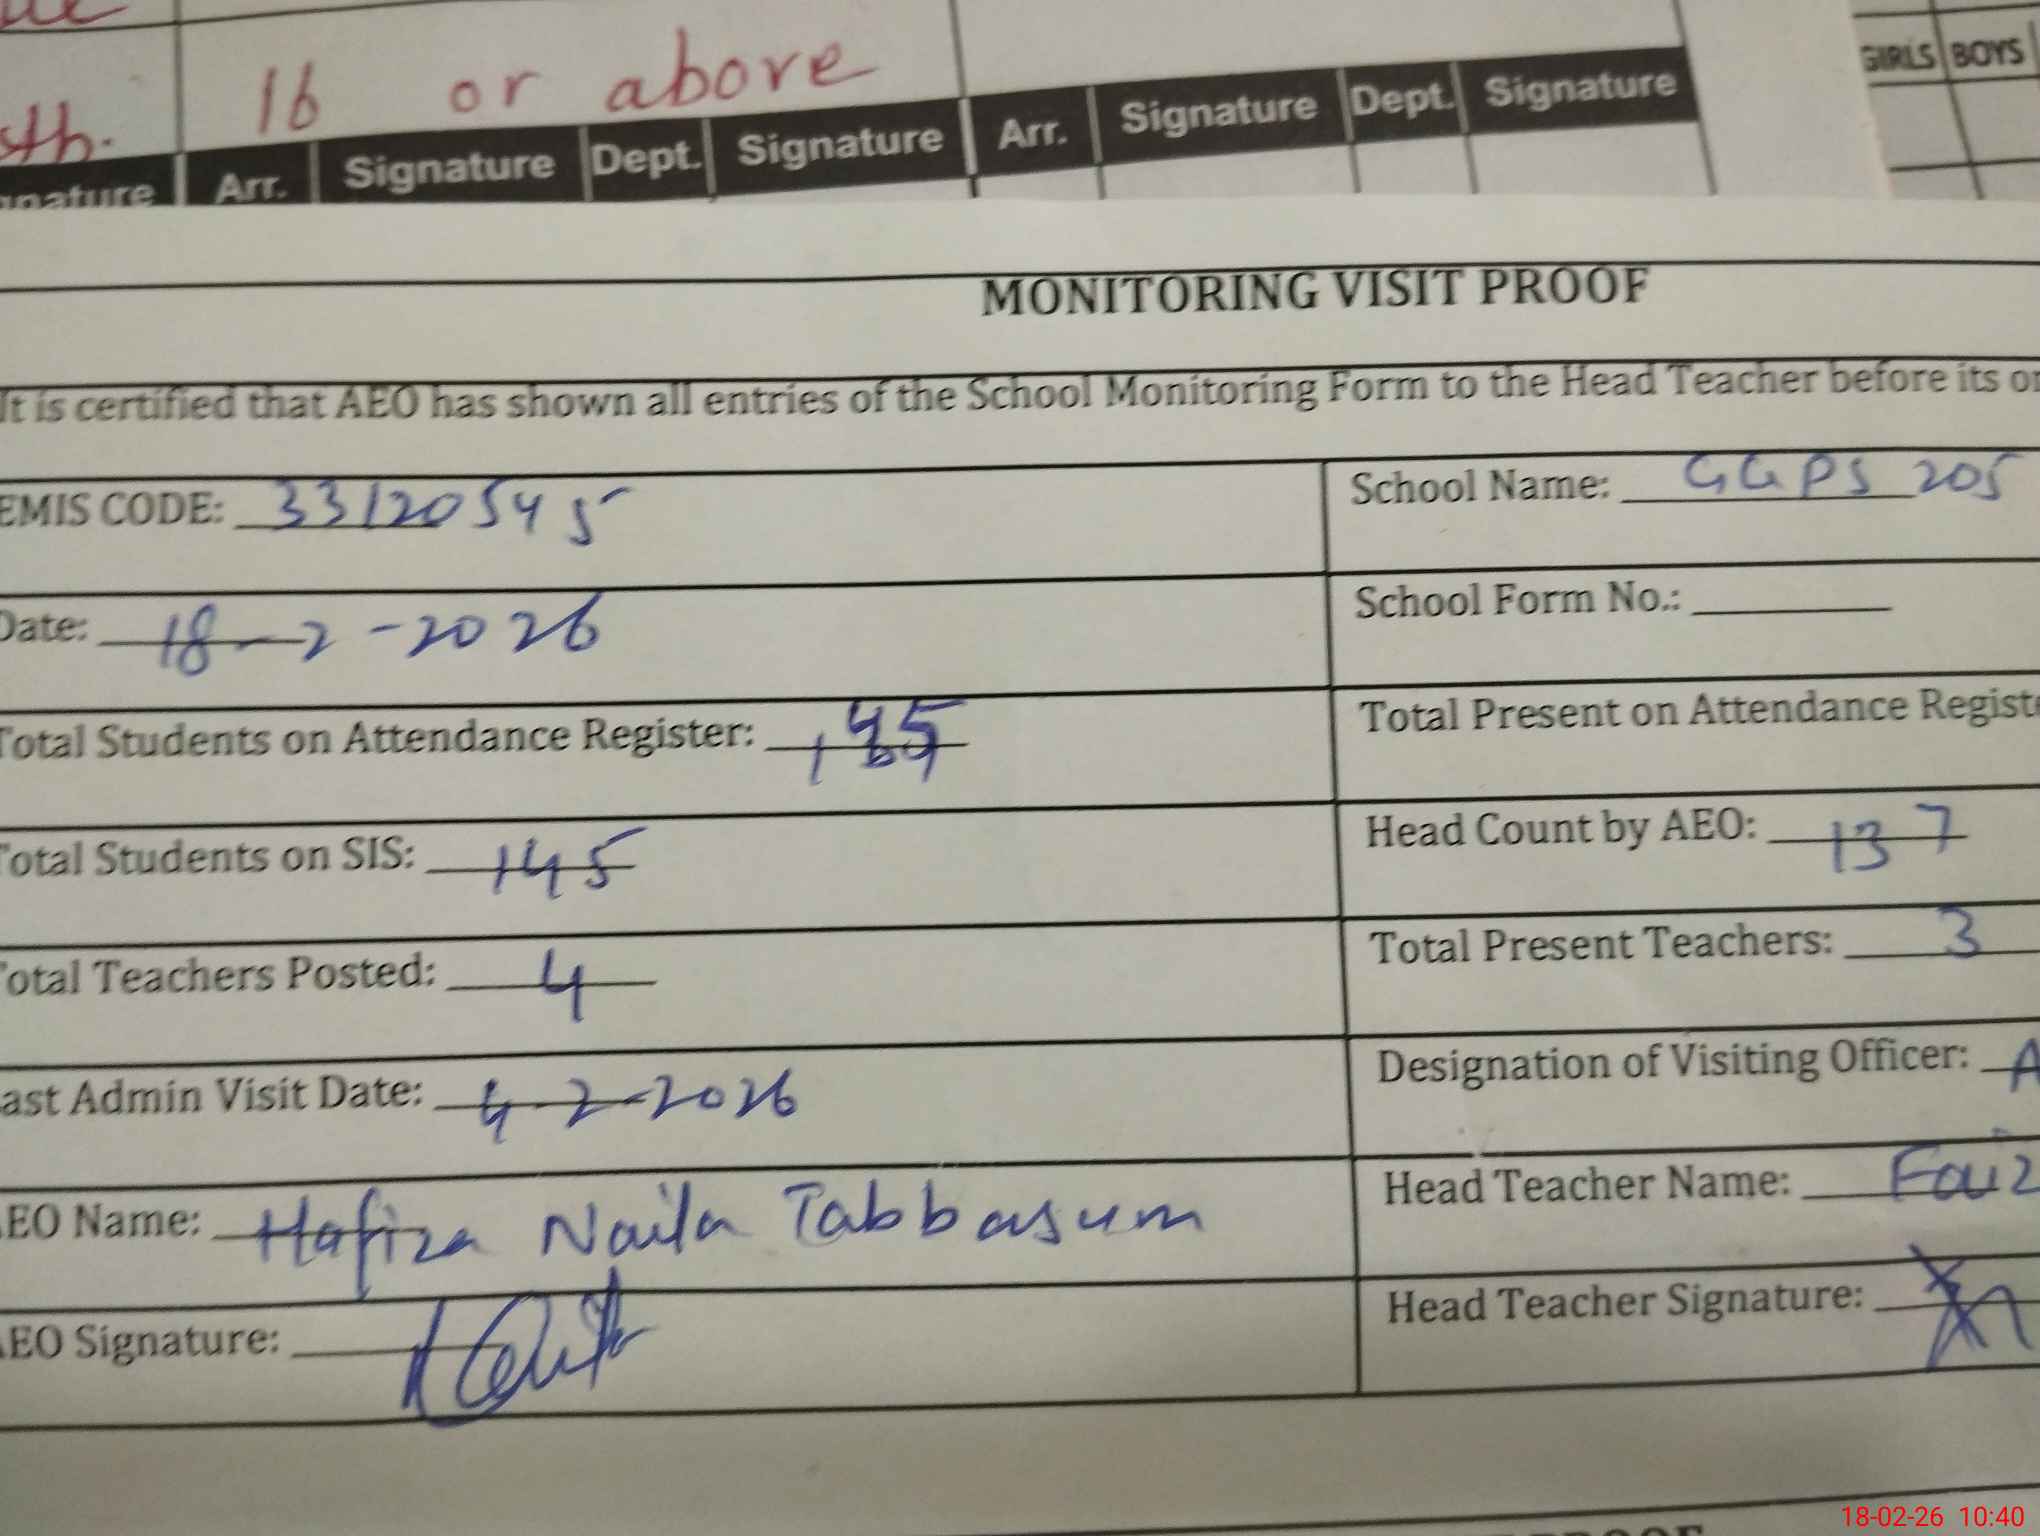 16 or above
GIRLS BOYS
Arr. Signature Dept. Signature Arr. Signature Dept. Signature
MONITORING VISIT PROOF
It is certified that AEO has shown all entries of the School Monitoring Form to the Head Teacher before its
EMIS CODE: 33120545 School Name: GGPS 205
Date: 18-2-2026 School Form No.:
Total Students on Attendance Register: Total Present on Attendance
Total Students on SIS: 145 Head Count by AEO: 137
Total Teachers Posted: 4 Total Present Teachers: 3
Last Admin Visit Date: 4-2-2026 Designation of Visiting Officer: A
AEO Name: Hafiza Naila Tabbasum Head Teacher Name:
AEO Signature: Head Teacher Signature:
18-02-26 10:40